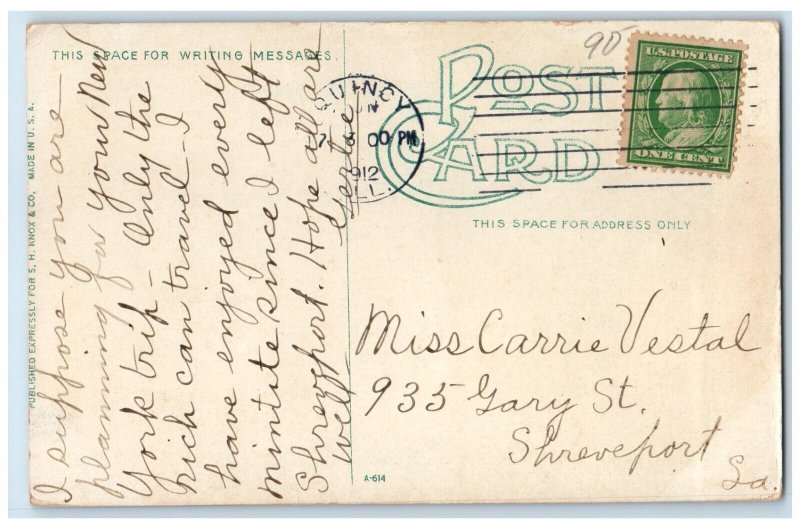 THIS SPACE FOR WRITING MESSAGES.
I suppose you are
planning for your New
York trip - Only the
rich can travel - I
have enjoyed every
mintite since I left
Shreveport. Hope all are
well
Gertie
PUBLISHED EXPRESSLY FOR S. H. KNOX & CO, MADE IN U.S.A.
90
POST CARD
QUINCY
JUN
7
00 PM
1912
ILL.
U.S. POSTAGE
ONE CENT
THIS SPACE FOR ADDRESS ONLY.
Miss Carrie Vestal
935 Gary St.
Shreveport
La.
A-614